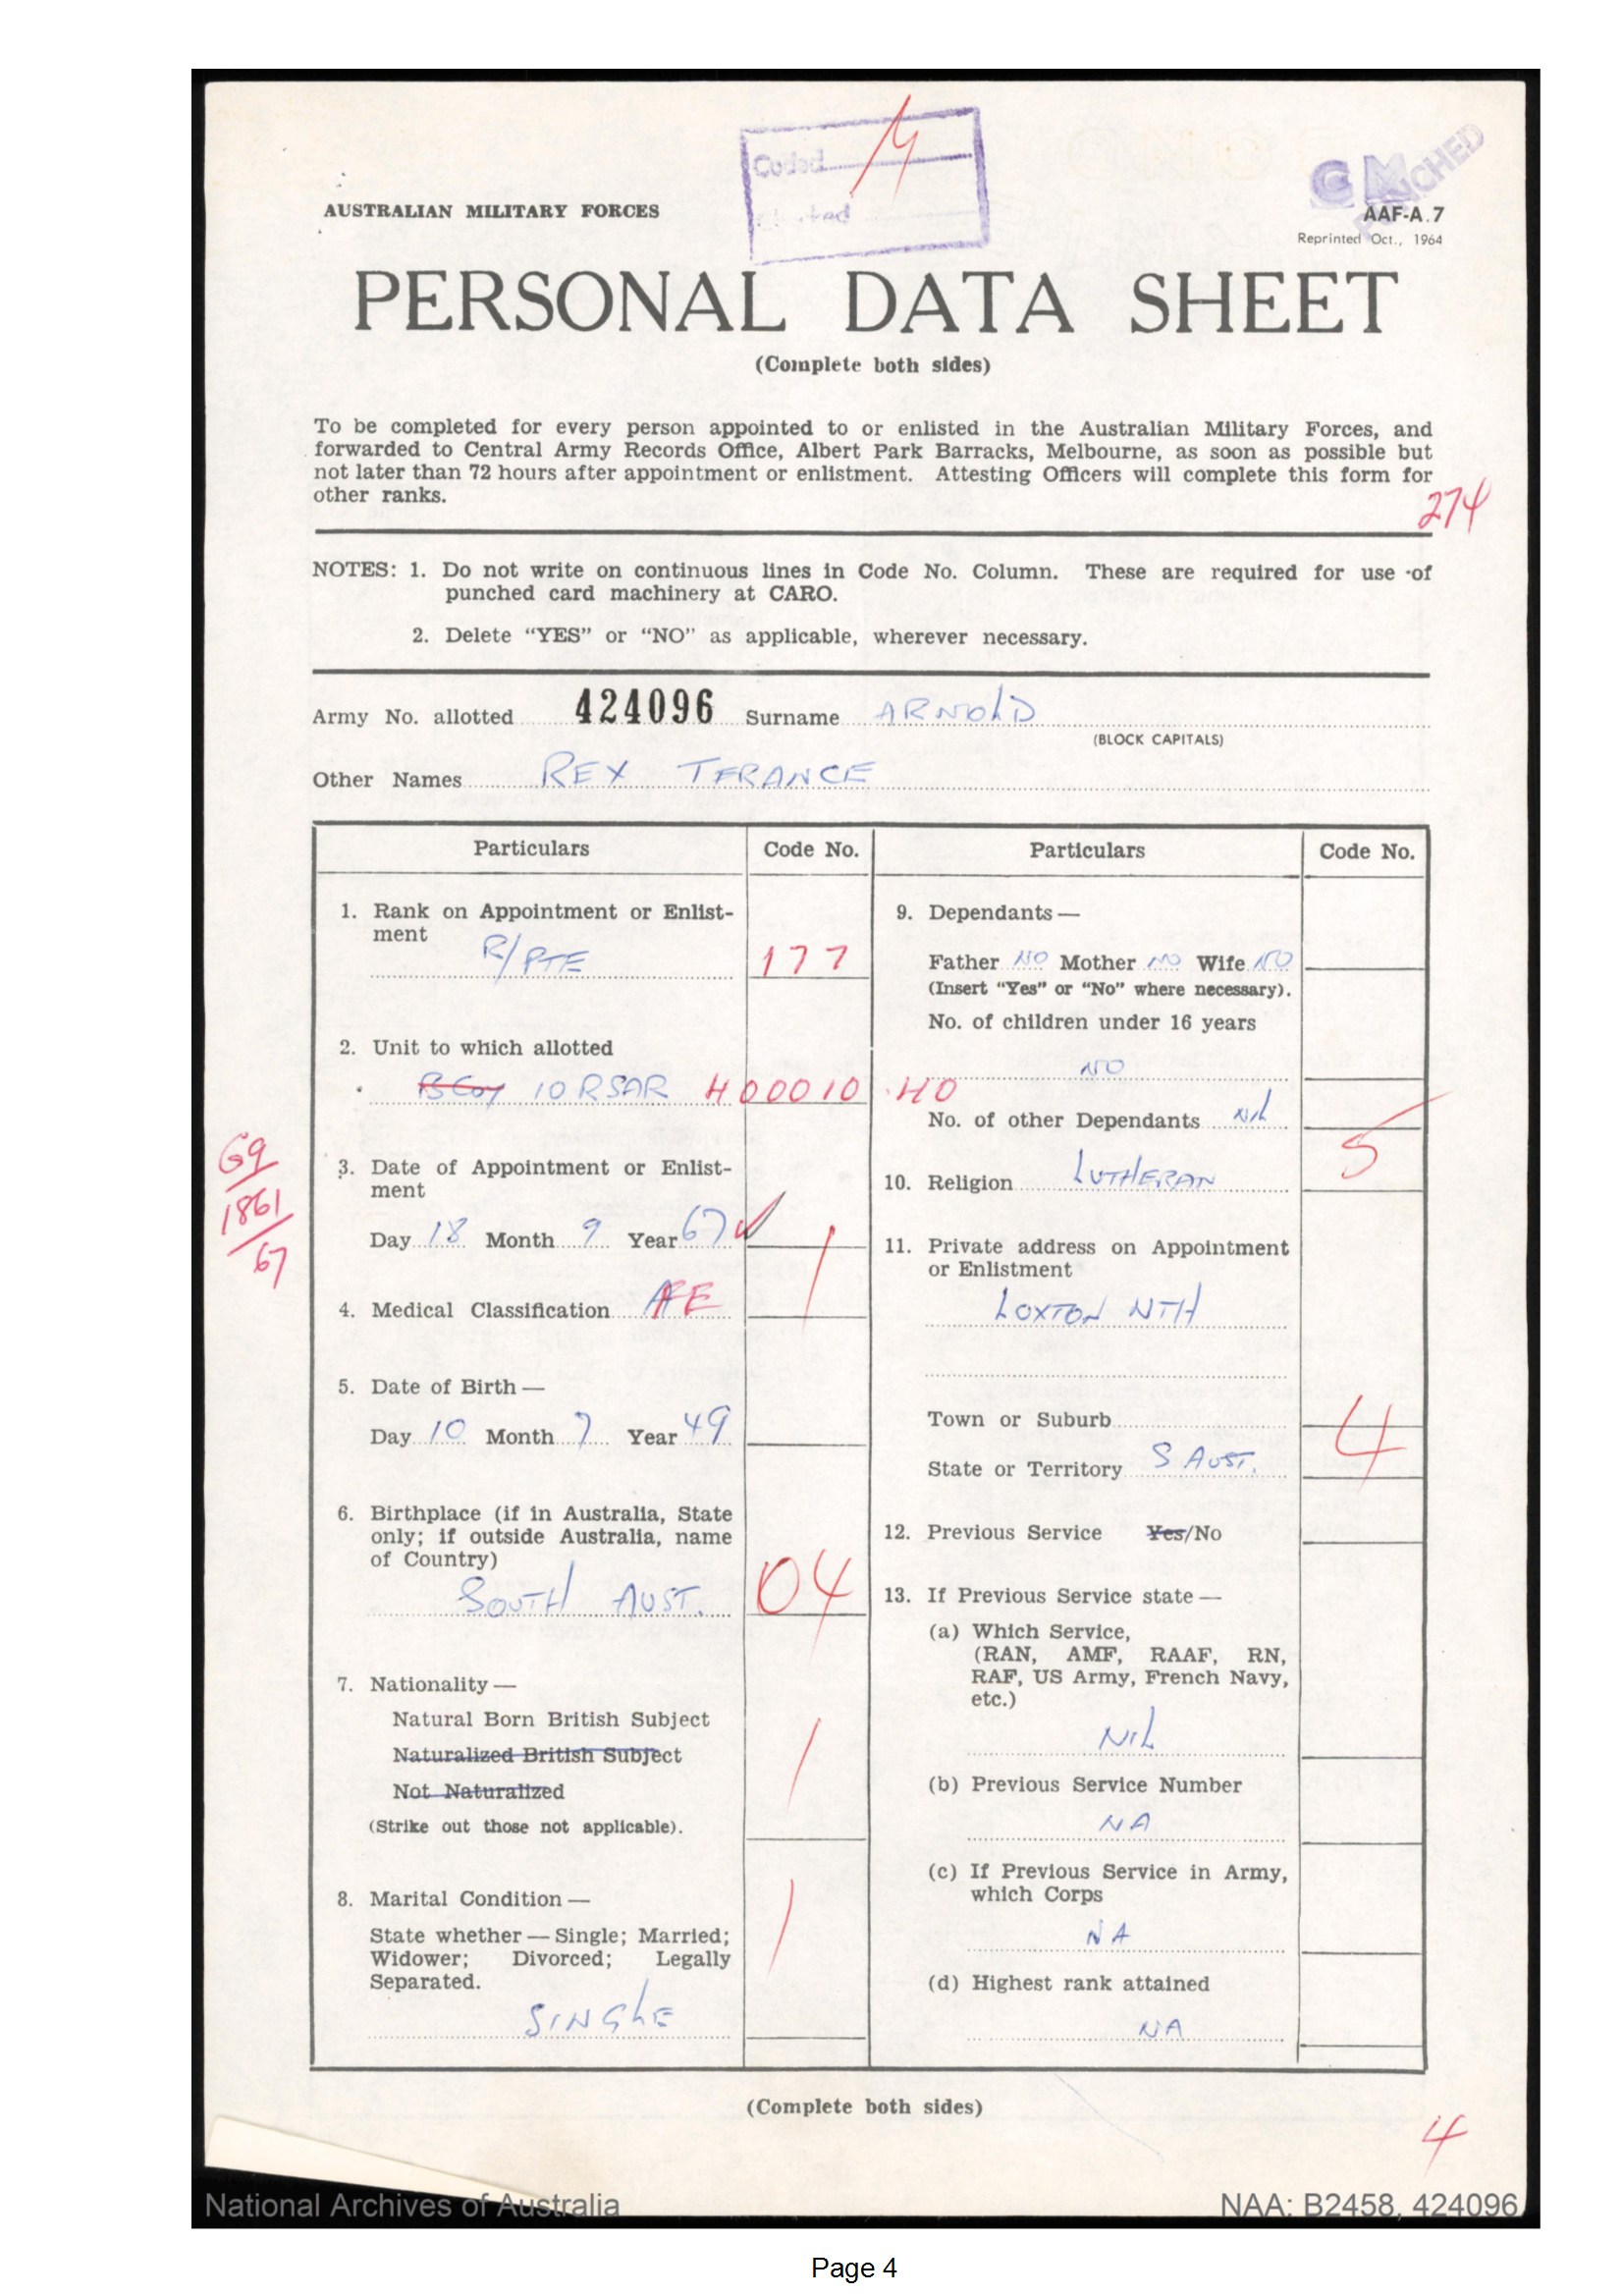 Coded
AUSTRALIAN MILITARY FORCES
AAF-A.7
Reprinted Oct., 1964
PERSONAL DATA SHEET
(Complete both sides)
To be completed for every person appointed to or enlisted in the Australian Military Forces, and
forwarded to Central Army Records Office, Albert Park Barracks, Melbourne, as soon as possible but
not later than 72 hours after appointment or enlistment. Attesting Officers will complete this form for
other ranks.
274
NOTES: 1. Do not write on continuous lines in Code No. Column. These are required for use of
punched card machinery at CARO.
2. Delete "YES" or "NO" as applicable, wherever necessary.
Army No. allotted 424096 Surname ARNOLD
(BLOCK CAPITALS)
Other Names REX TERANCE
Particulars Code No.
1. Rank on Appointment or Enlist-
ment
R/PTE 177
2. Unit to which allotted
B Coy 10 RSAR 400010 40
69
1861
67
3. Date of Appointment or Enlist-
ment
Day 18 Month 9 Year 67
4. Medical Classification FE 1
5. Date of Birth —
Day 10 Month 7 Year 49
6. Birthplace (if in Australia, State
only; if outside Australia, name
of Country)
SOUTH AUST. 04
7. Nationality —
Natural Born British Subject
Naturalized British Subject
Not Naturalized
(Strike out those not applicable).
1
8. Marital Condition —
State whether — Single; Married;
Widower; Divorced; Legally
Separated.
SINGLE 1
Particulars Code No.
9. Dependants —
Father NO Mother NO Wife NO
(Insert "Yes" or "No" where necessary).
No. of children under 16 years
NO
No. of other Dependants Nil
10. Religion LUTHERAN 5
11. Private address on Appointment
or Enlistment
LOXTON NTH
Town or Suburb
State or Territory S AUST. 4
12. Previous Service Yes/No
13. If Previous Service state —
(a) Which Service,
(RAN, AMF, RAAF, RN,
RAF, US Army, French Navy,
etc.)
NIL
(b) Previous Service Number
NA
(c) If Previous Service in Army,
which Corps
NA
(d) Highest rank attained
NA
(Complete both sides)
4
National Archives of Australia
NAA: B2458, 424096
Page 4